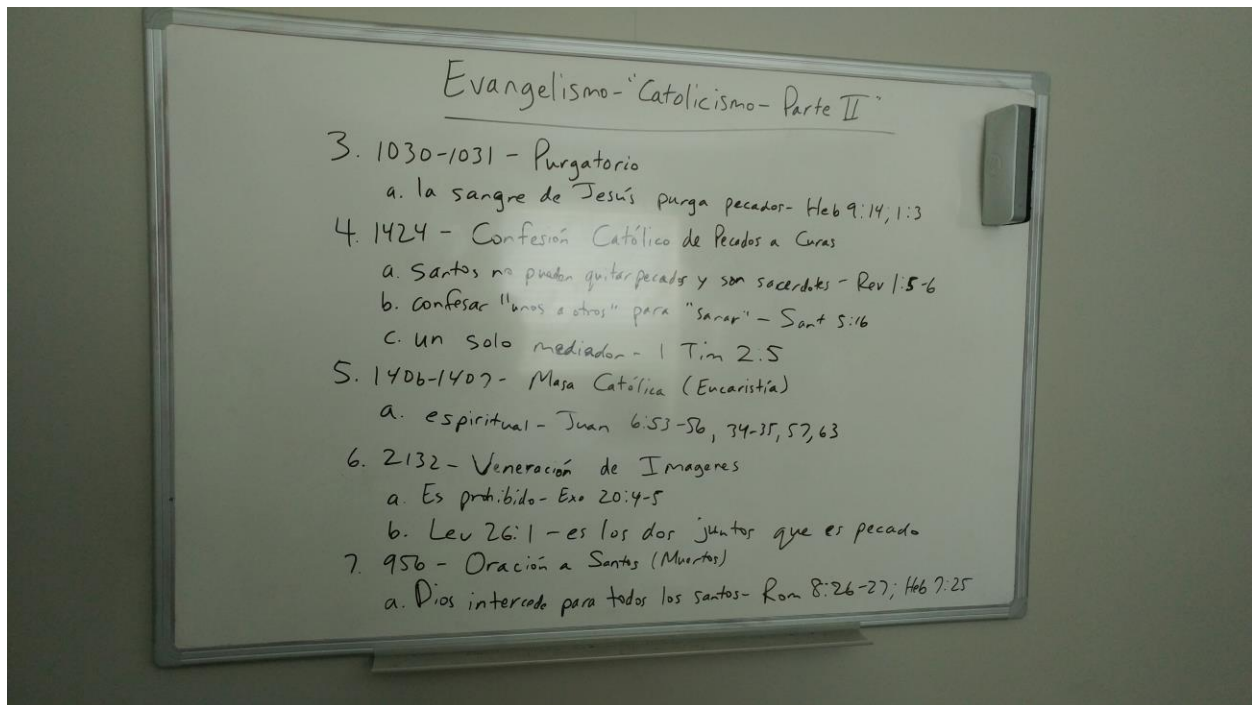 Evangelismo-"Catolicismo- Parte II"
3. 1030-1031 - Purgatorio
a. la sangre de Jesús purga pecados- Heb 9:14; 1:3
4. 1424 - Confesión Católico de Pecados a Curas
a. Santos no pueden quitar pecados y son sacerdotes - Rev 1:5-6
b. confesar "unos a otros" para "sanar" - Sant 5:16
c. un solo mediador - 1 Tim 2:5
5. 1406-1407- Masa Católica (Eucaristía)
a. espiritual - Juan 6:53-56, 34-35, 57, 63
6. 2132 - Veneración de Imagenes
a. Es prohibido- Exo 20:4-5
b. Lev 26:1 - es los dos juntos que es pecado
7. 956 - Oración a Santos (Muertos)
a. Dios intercede para todos los santos- Rom 8:26-27; Heb 7:25